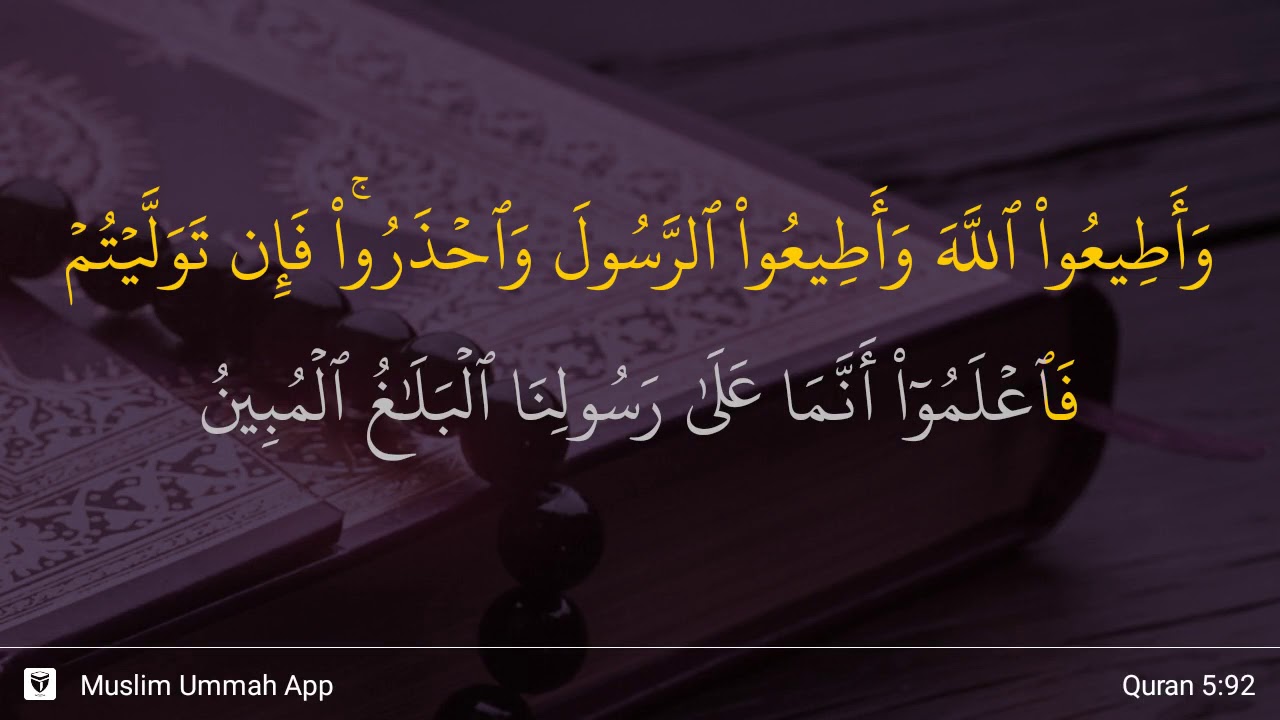 وَأَطِيعُوا۟ ٱللَّهَ وَأَطِيعُوا۟ ٱلرَّسُولَ وَٱحْذَرُوا۟ ۚ فَإِن تَوَلَّيْتُمْ
فَٱعْلَمُوٓا۟ أَنَّمَا عَلَىٰ رَسُولِنَا ٱلْبَلَـٰغُ ٱلْمُبِينُ
Muslim Ummah App
Quran 5:92